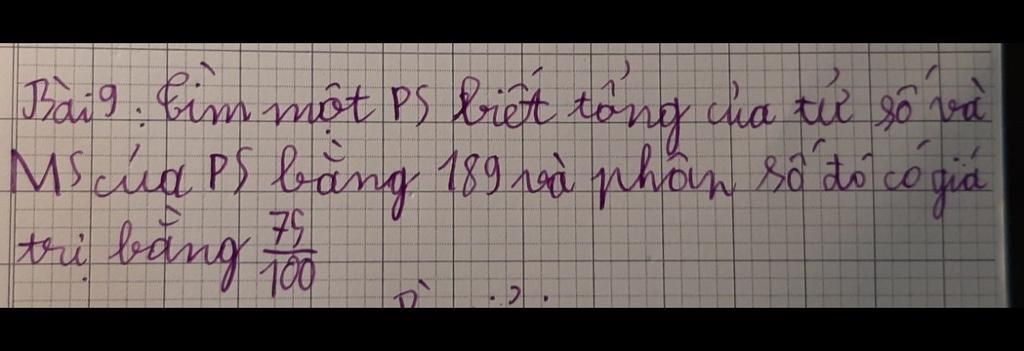 Bài 9: Tìm một PS biết tổng của tử số và
MS của PS bằng 189 và phân số đó có giá
trị bằng 75/100